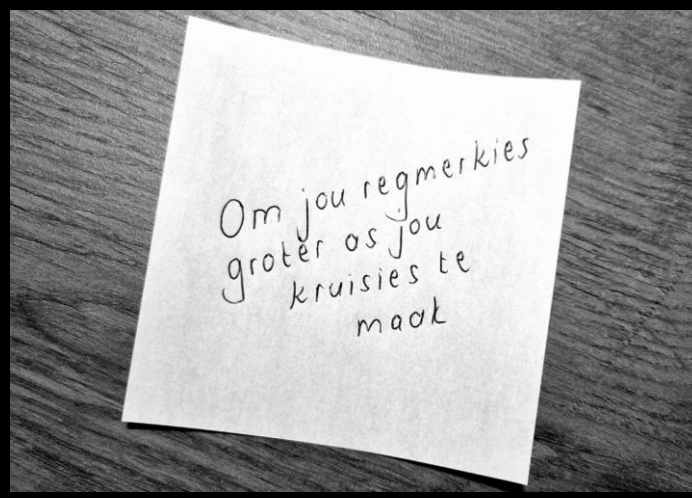 Om jou regmerkies
groter as jou
kruisies te
maak